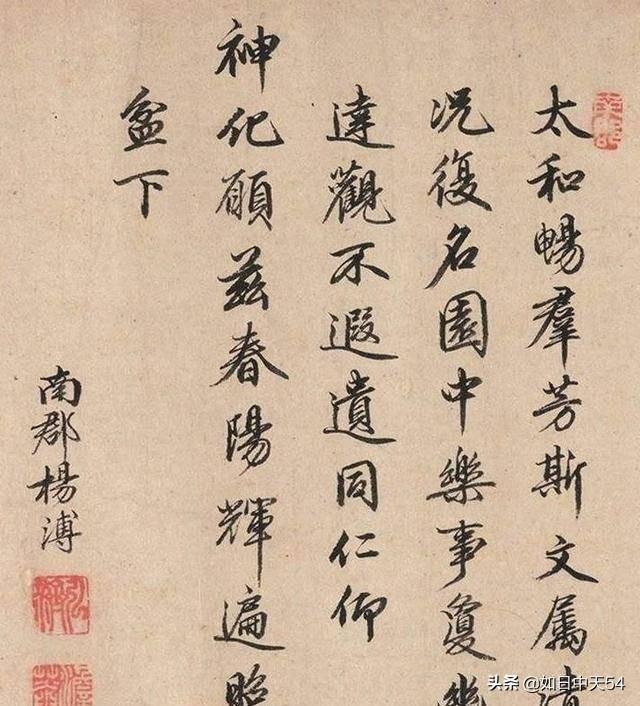 太和暢羣芳斯文属清
况復名園中樂事夐
達觀不遐遺同仁仰
神化願兹春陽輝遍照
盆下
南郡楊溥
头条 @如日中天54